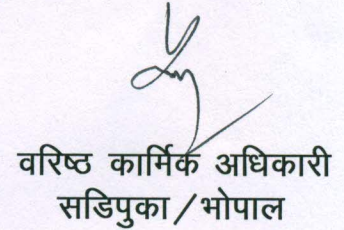 वरिष्ठ कार्मिक अधिकारी
सडिपुका / भोपाल